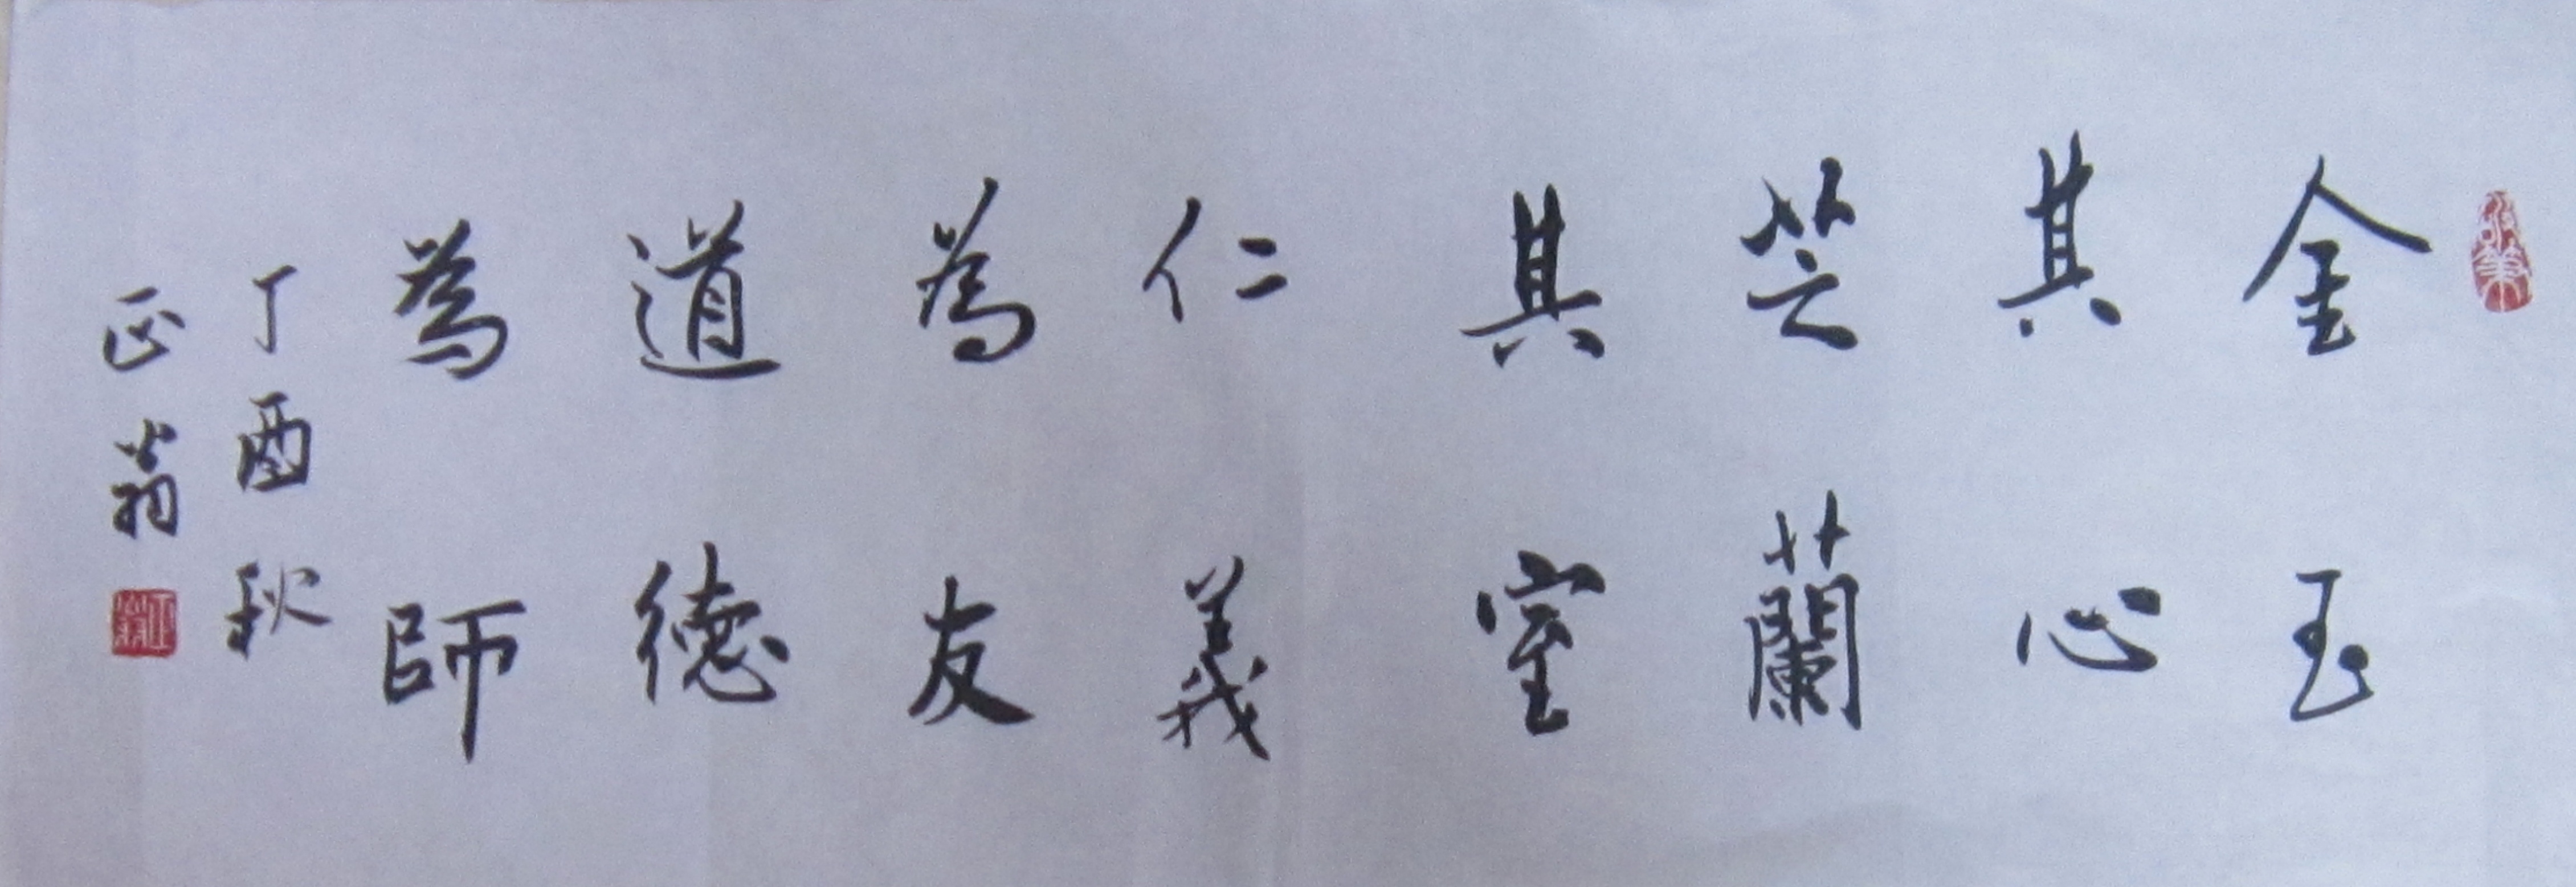 金玉
其心
芝蘭
其室
仁義
為友
道德
為師
丁酉秋
正翁
正翁